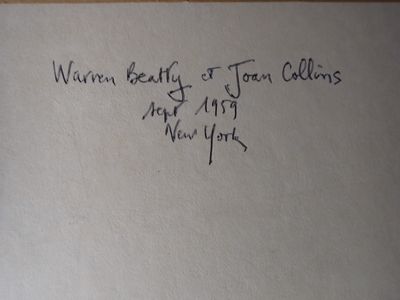 Warren Beatty et Joan Collins
sept 1959
New York